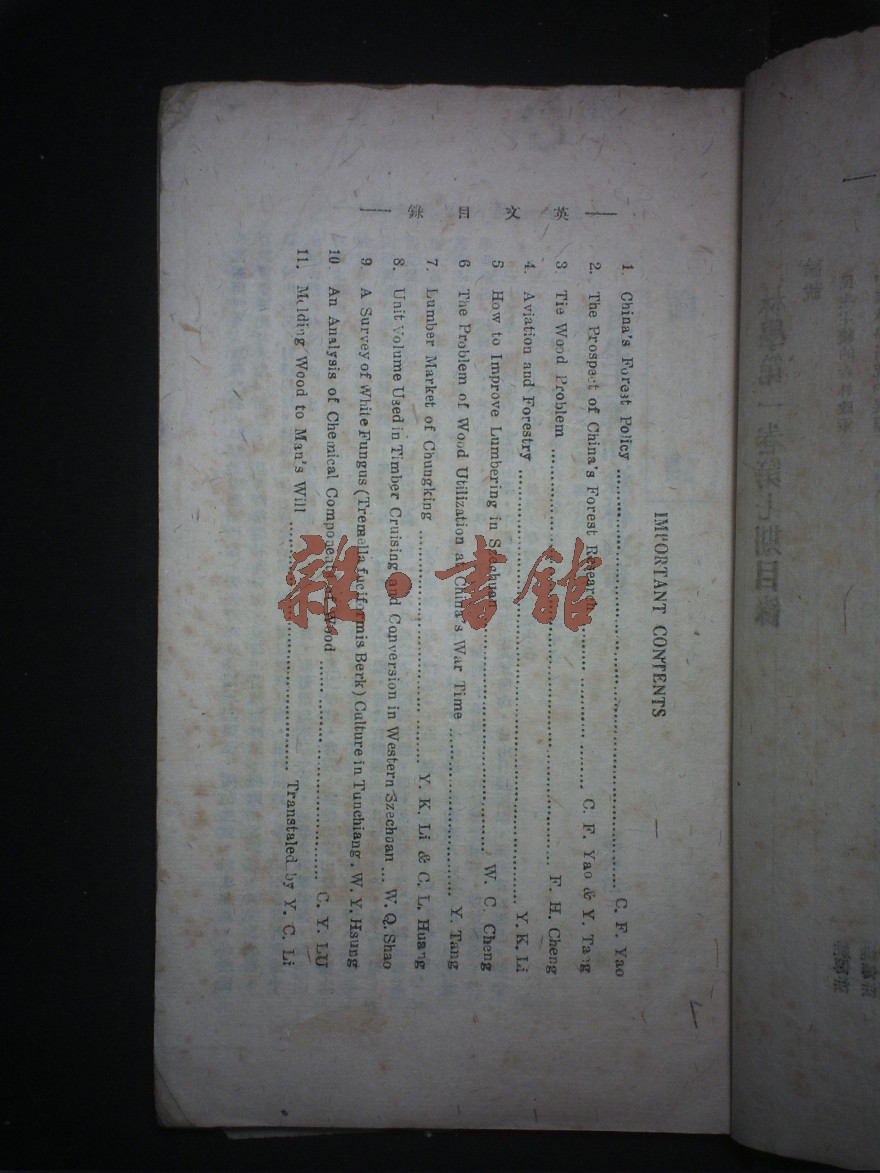 — 英文目錄 —
IMPORTANT CONTENTS
1. China's Forest Policy .......... C. F. Yao
2. The Prospect of China's Forest Research .......... C. F. Yao & Y. Tang
3 Tie Wood Problem .......... F. H. Cheng
4. Aviation and Forestry .......... Y. K. Li
5 How to Improve Lumbering in Szechuan .......... W. C. Cheng
6 The Problem of Wood Utilization at China's War Time .......... Y. Tang
7. Lumber Market of Chungking .......... Y. K. Li & C. L. Huang
8. Unit Volume Used in Timber Cruising and Conversion in Western Szechuan ... W. Q. Shao
9. A Survey of White Fungus (Tremella fuciformis Berk) Culture in Tunchiang . W. Y. Hsung
10 An Analysis of Chemical Components of Wood .......... C. Y. LU
11. Molding Wood to Man's Will .......... Transtaled by Y. C. Li
雜·書館